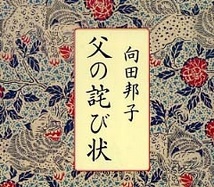 向田邦子
父の詫び状